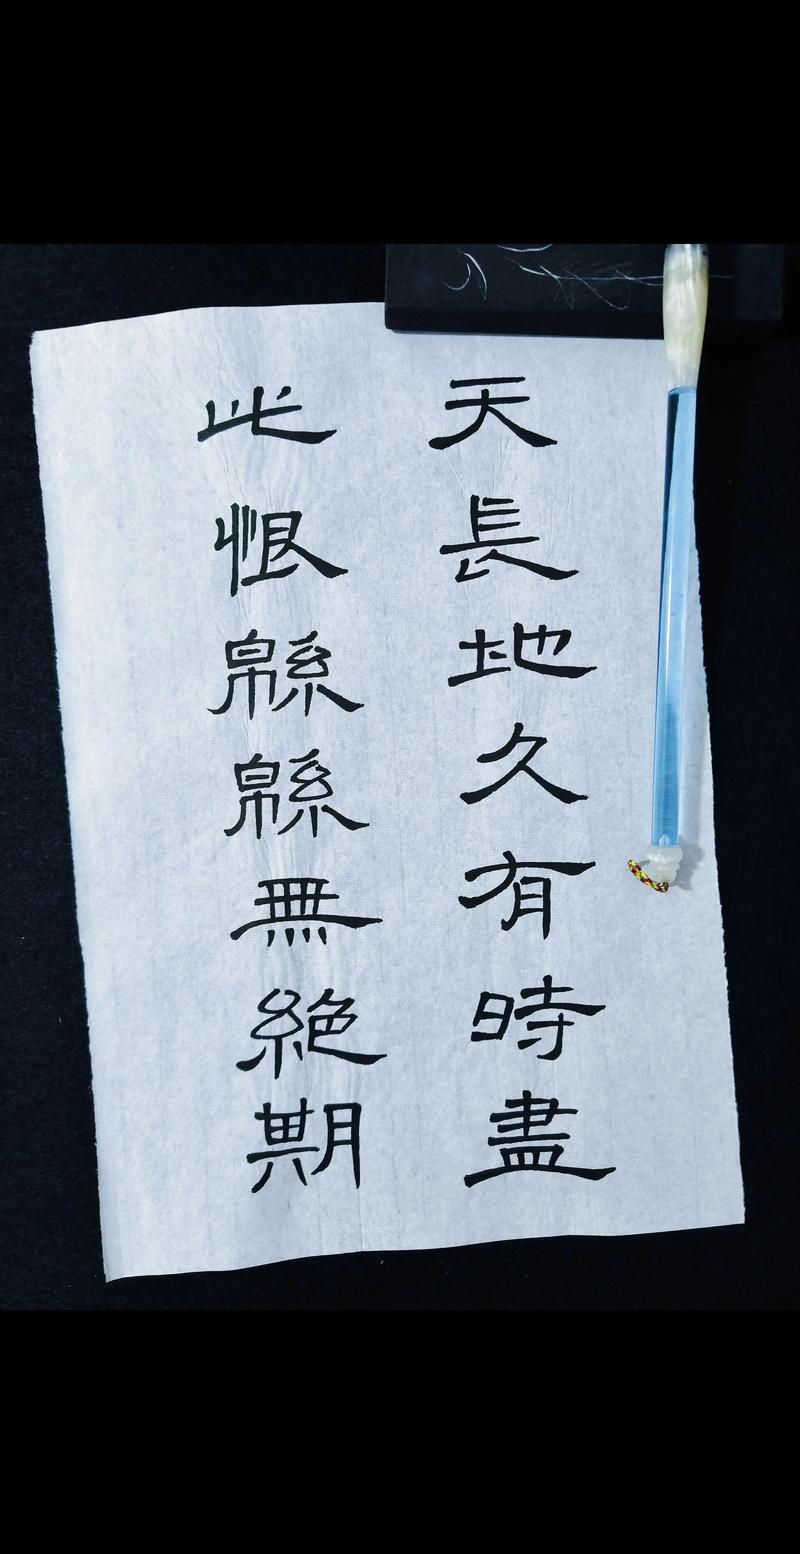 天長地久有時盡
此恨緜緜無絶期